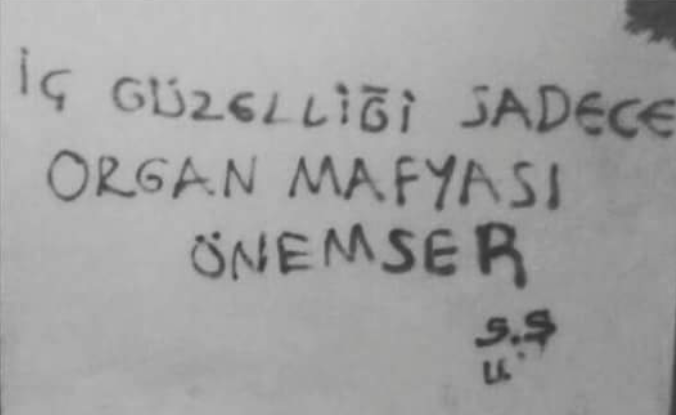 İÇ GÜZELLİĞİ SADECE
ORGAN MAFYASI
ÖNEMSER
S.Ş